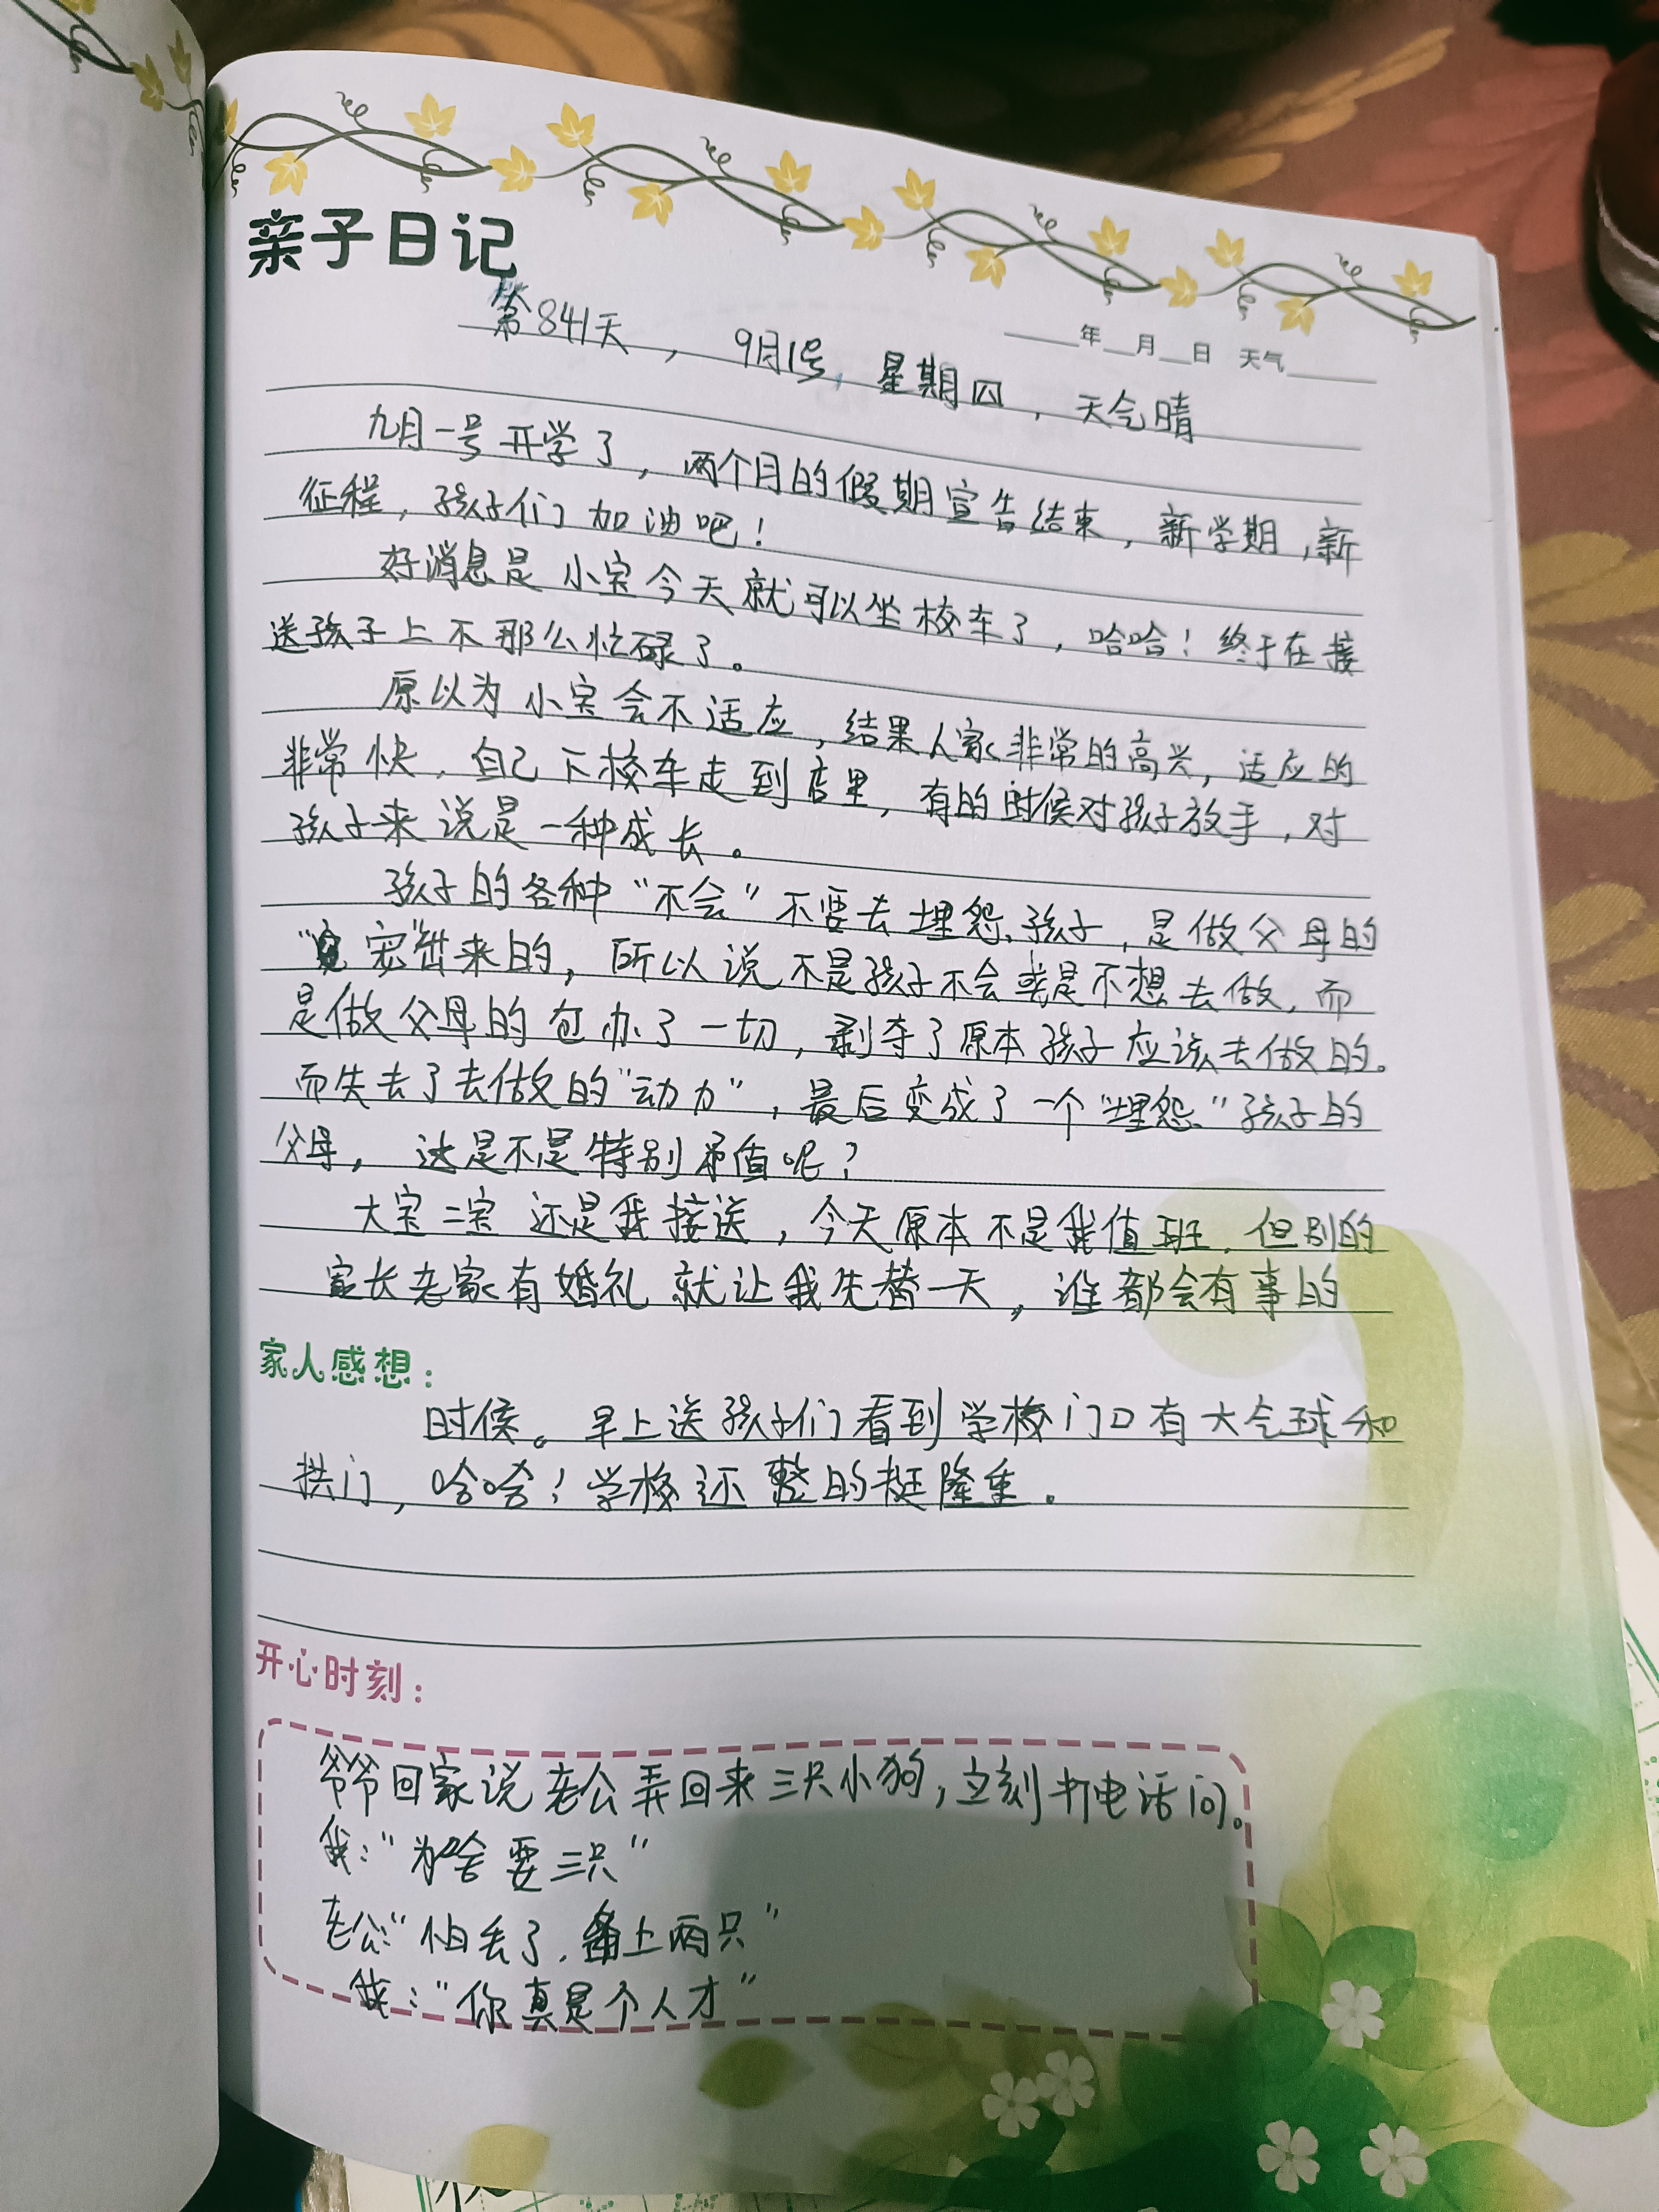 亲子日记
年 月 日 天气
第841天, 9月1号, 星期四, 天气晴
九月一号开学了, 两个月的假期宣告结束, 新学期, 新
征程, 孩子们加油吧!
好消息是小宝今天就可以坐校车了, 哈哈! 终于在接
送孩子上不那么忙碌了。
原以为小宝会不适应, 结果人家非常的高兴, 适应的
非常快, 自己下校车走到店里, 有的时候对孩子放手, 对
孩子来说是一种成长。
孩子的各种“不会”不要去埋怨孩子, 是做父母的
“宠”出来的, 所以说不是孩子不会或是不想去做, 而
是做父母的包办了一切, 剥夺了原本孩子应该去做的。
而失去了去做的“动力”, 最后变成了一个“埋怨”孩子的
父母, 这是不是特别矛盾呢?
大宝二宝还是我接送, 今天原本不是我值班, 但别的
家长老家有婚礼就让我先替一天, 谁都会有事的
家人感想:
时候。早上送孩子们看到学校门口有大气球和
拱门, 哈哈! 学校还整的挺隆重。
开心时刻:
爷爷回家说老公弄回来三只小狗, 立刻打电话问。
我:“为啥要三只”
老公:“怕丢了, 备上两只”
我:“你真是个人才”